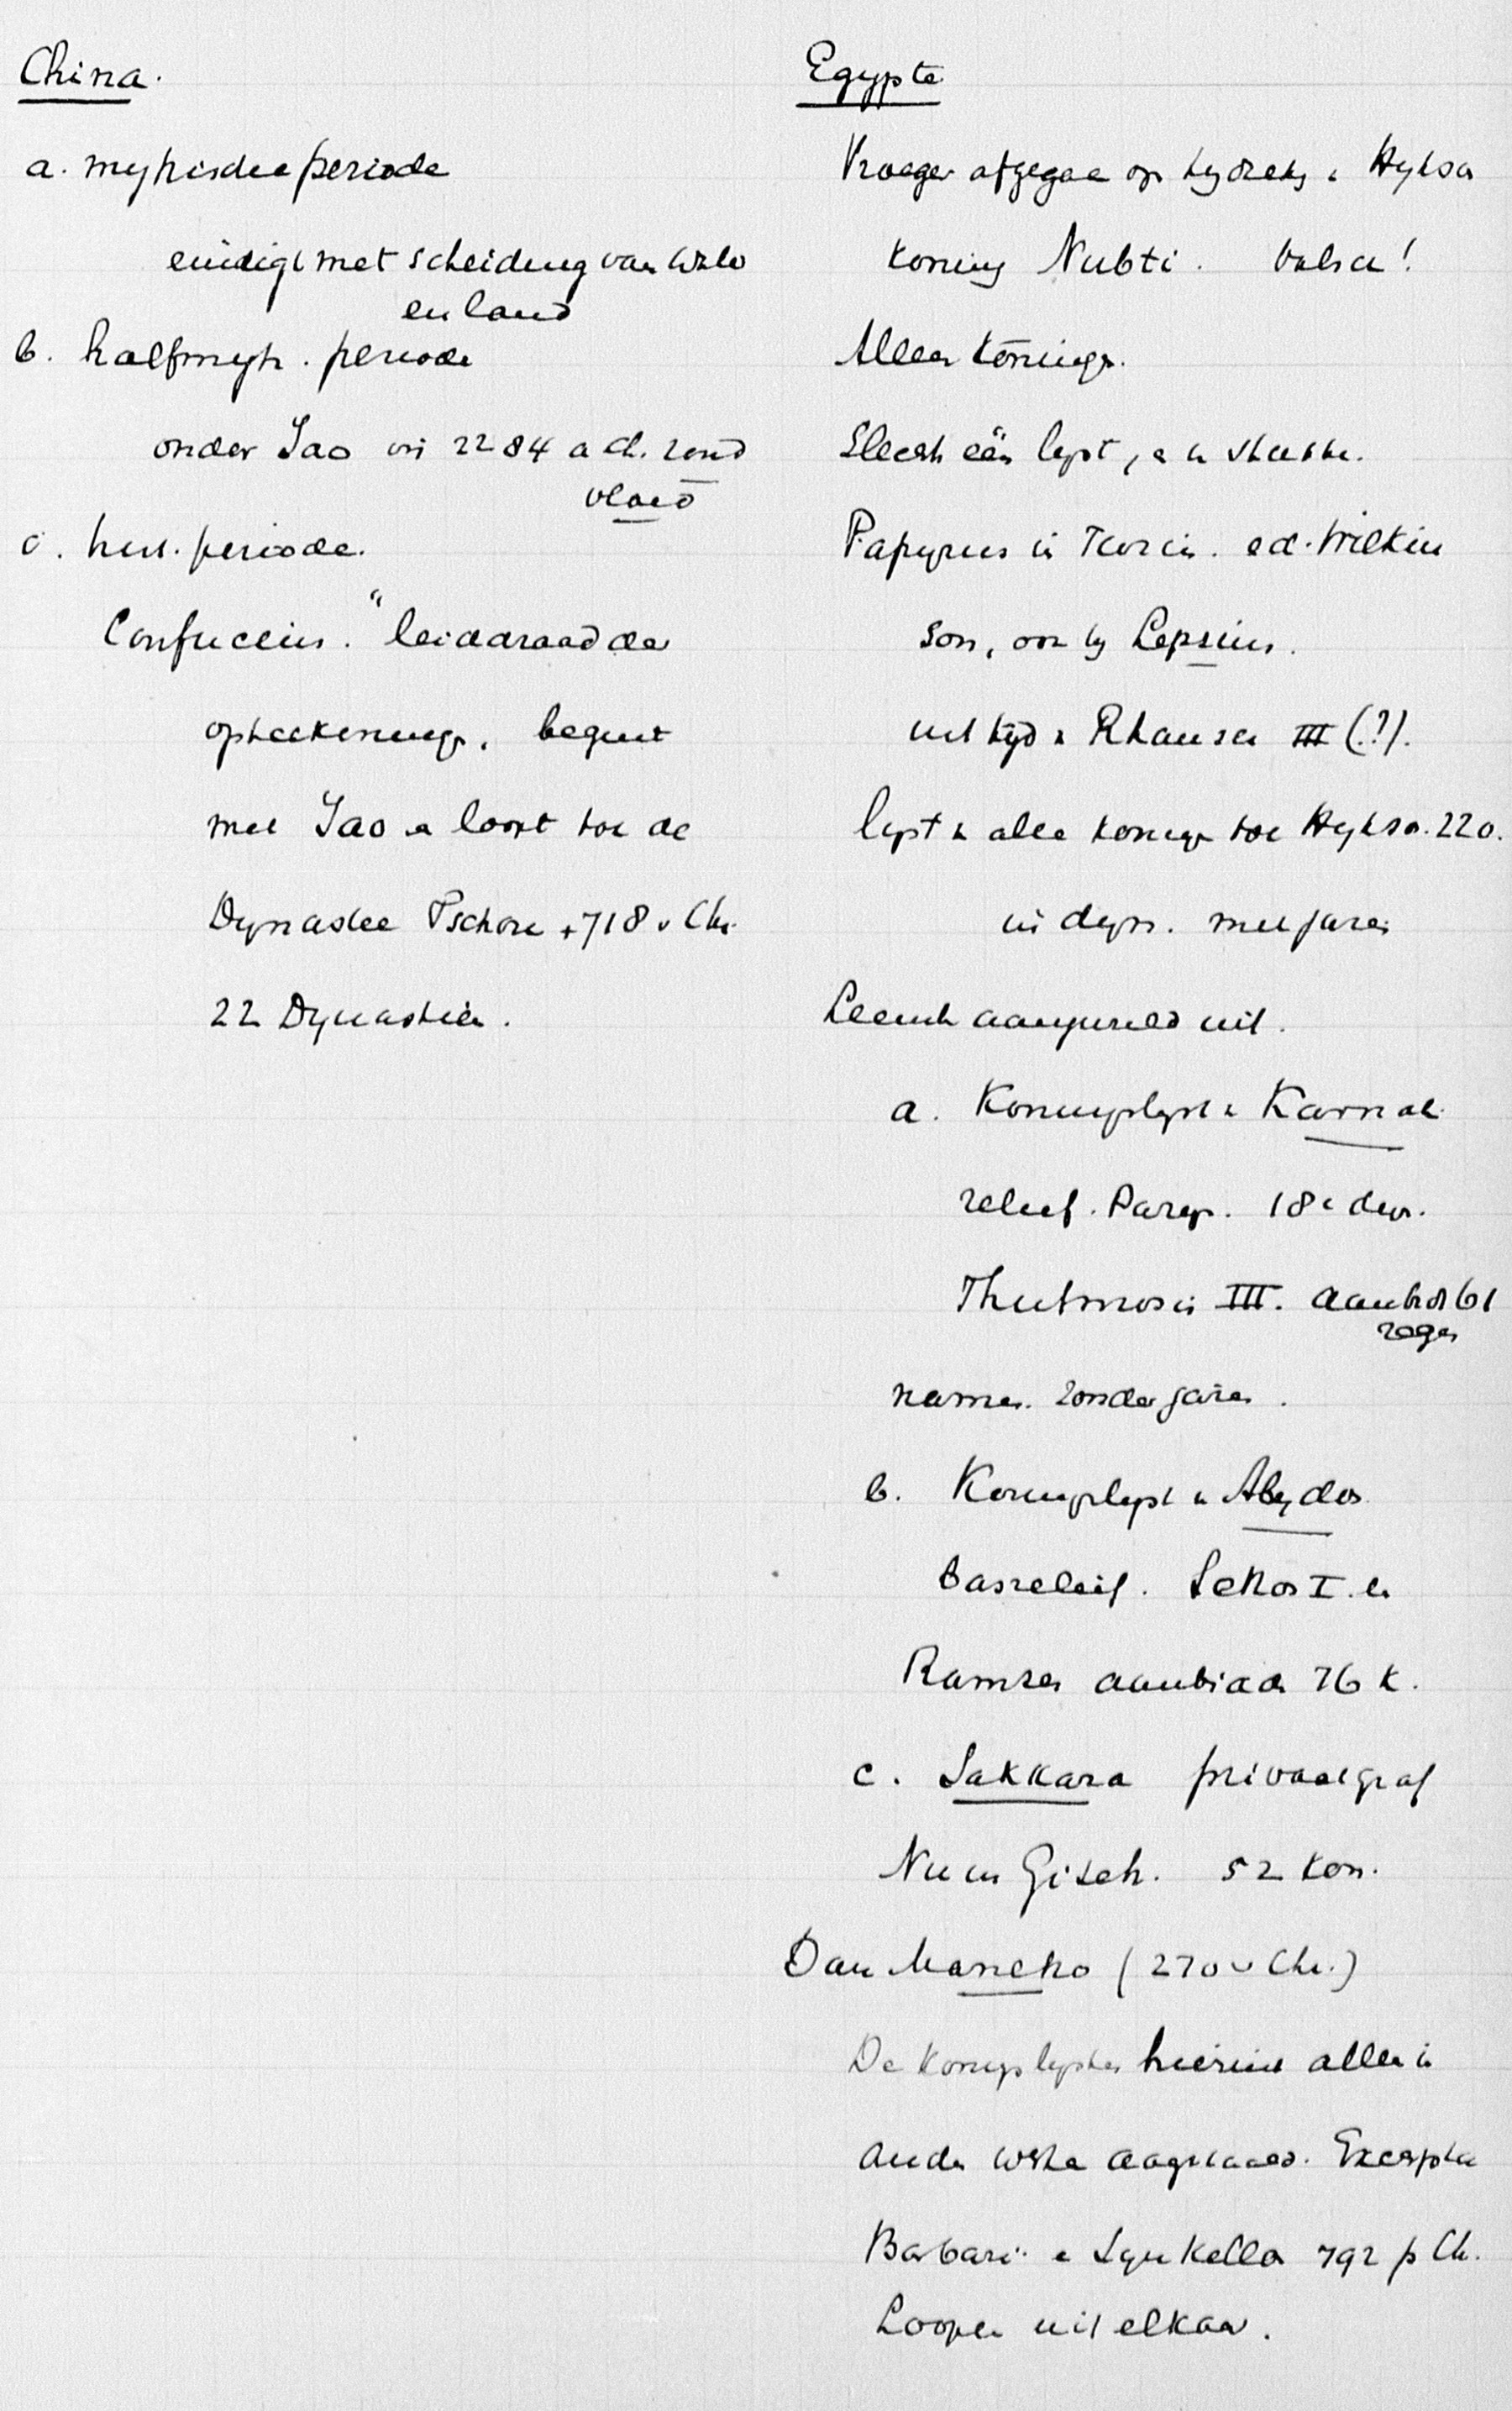 China.
a. mythische periode
eindigt met scheiding van water
en land
b. halfmyth. periode
onder Jao in 2284 a Ch. zond
vloed
c. hist. periode.
Confucius. "leidraad der
opteekeninge, begint
met Jao en loopt tot de
Dynastie Tschou +718 v Chr.
22 Dynastien.
Egypte
Vroeger afgegaan op Hyksos
koning Nubti. Valsch!
Alleen koningen.
Slechts één lyst, en
Papyrus in Turin. ed. Wilkin
son, ook by Lepsius.
uit tyd v Rhamses III (?).
lyst v alle koningen tot Hyksos. 220.
in dyn. met jaren
Leemte aangevuld uit.
a. Koningslyst v Karnak
relief. Parijs. 18e dyn.
Thutmosis III. aanbidt 61
namen. zonder jaren.
b. Koningslyst v Abydos
basrelief. Sethos I. en
Ramses aanbidden 76 k.
c. Sakkara privaatgraf
Nu in Giseh. 52 kon.
Dan Manetho (270 v Chr.)
De koningslysten hierin alleen in
andere werken Excerpta
Barbari en Synkellos 792 p Ch.
Loopen uit elkaar.